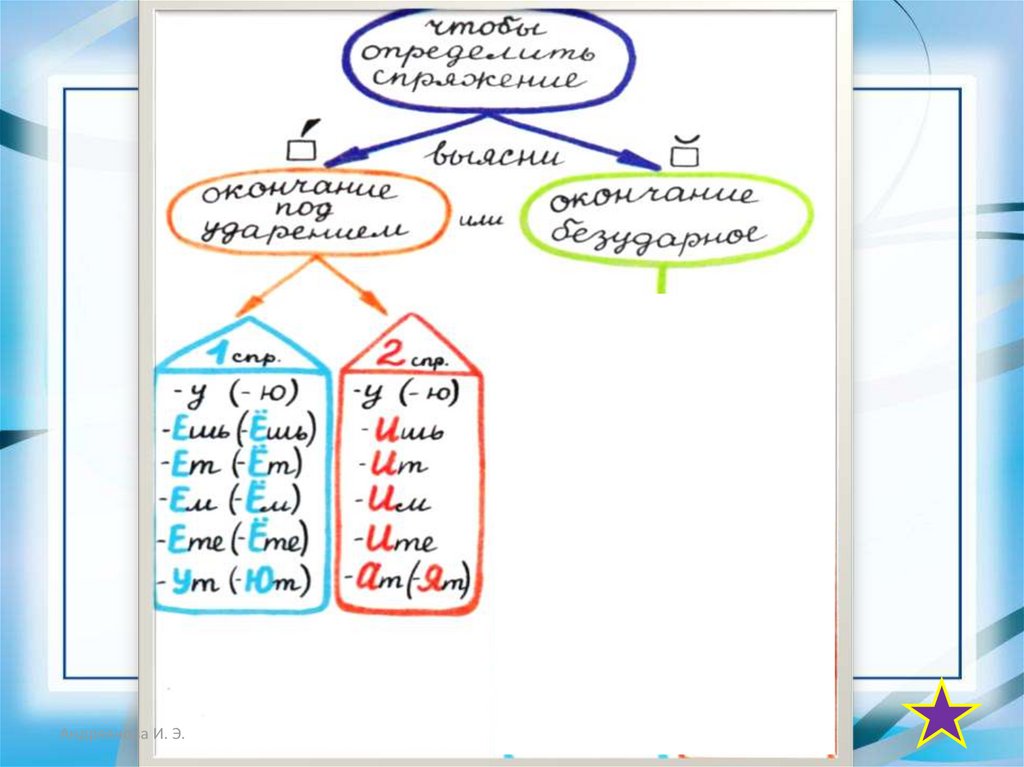 чтобы
определить
спряжение
выясни
окончание
под
ударением
или
окончание
безударное
1 спр.
-у (-ю)
-Ешь (-Ёшь)
-Ет (-Ёт)
-Ем (-Ём)
-Ете (-Ёте)
-Ут (-Ют)
2 спр.
-у (-ю)
-Ишь
-Ит
-Им
-Ите
-Ат (-Ят)
И. Э.